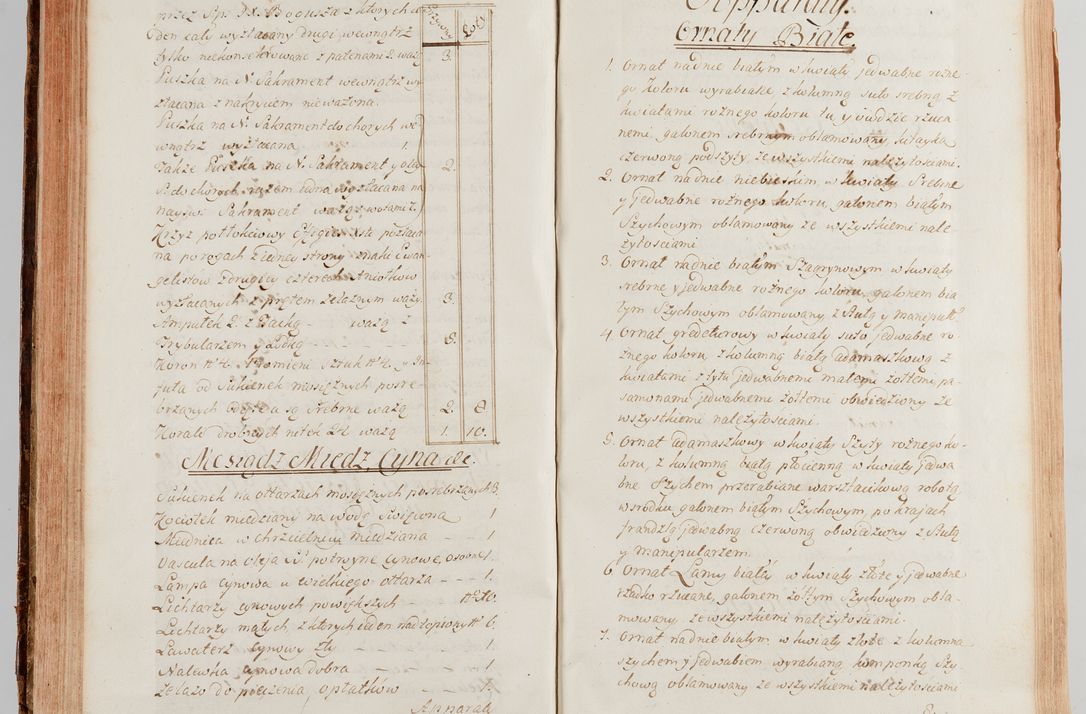 przez Xp. DXAB oguszæ z ktorych ie
Grzywny Łoty
den cały wyzłacany drugi wewnątrz
tylko niekonsekrowane z patenami 2. waż 3.
Puszka na N. Sakrament wewnątrz wy
złacana z nakryciem nieważona.
Puszka na N. Sakrament do chorych we
wnątrz wyzłacana 1.
Także Puszka na N. Sakrament y oley
S. do chorych razem iedna wyzłacana na
nayśw: Sakrament ważą z wosami 2. 2.
Krzyż połłokciowy pozłaca
na porogach z iedney strony znaki Ewan
gelistow z drugiey czterech Aniołkow
wyzłacanych z prętem żelaznim waży. 3.
Ampułek 2. z Tacką - ważą z
Trybularzem y Łodką 8.
Koron No 4. Promieni sztuk No 4. y In
futa od Sukienek mosiężnych posre-
brzanych odięte a są srebrne ważą 2. 8
Korali drobnych nitek 24 ważą 1. 10.
Mosiądz Miedz, Cyna etc.
Sukienek na ołtarzach mosiężnych posrebrzanych 3.
Kociołek miedziany na wodę święconą 1
Miednica w chrzcielnicy miedziana - 1
Vascula na Oleja SS. potroyne cynowe, osobne 1.
Lampa cynowa u wielkiego ołtarza - - - 1.
Lichtarzy cynowych powiększych - No 10.
Lichtarzy małych, z ktorych ieden nadtopiony No 6.
Lawaterz cynowy zły - - - 1.
Nalewka cynowa dobra - - - 1.
Żelazo do pieczenia opłatków - - 1.
Apparaty
Apparaty.
Ornaty Białe.
1. Ornat na dnie białym w kwiaty jedwabne rożne-
go koloru wyrabiake z kolumną suto srebrną z
kwiatami rożnego koloru tu y owdzie rzuca-
nemi, galonem srebrnym oblamowany, kitayką
czerwoną podszyty, ze wszystkiemi należytościami.
2. Ornat na dnie niebieskim, w kwiaty Srebrne
y jedwabne rożnego koloru, galonem białym
Szychowym oblamowany ze wszystkiemi nale-
żytościami.
3. Ornat na dnie białym Szagrynowym w kwiaty
srebrne y jedwabne rożnego koloru, galonem bia
łym Szychowym oblamowany, z Stułą y manipułł
4. Ornat grodeturowy w kwiaty suto jedwabne ro-
żnego koloru, z kolumną białą adamaszkową z
kwiatami z żyta jedwabnemi małemi żołtemi, pa-
samonami jedwabnemi żołtemi obwiedziony ze
wszystkiemi należytościami.
5. Ornat adamaszkowy w kwiaty Szyty rożnego ko-
loru, z kolumną białą płocienną w kwiaty jedwa
bne Szychem przerabiane warsztacikową robotą
w srodku galonem białym Szychowym, po krajach
frandzlą jedwabną czerwoną obwiedziony z Stułą
y manipularzem.
6 Ornat Lamy biały w kwiaty złote y jedwabne
rzadko rzucane, galonem żołtym Szychowym obla-
mowany, ze wszystkiemi należytościami.
7. Ornat na dnie białym w kwiaty złote z kolumną
szychem y jedwabiem wyrabianą kamponką Szy-
chową oblamowany ze wszystkiemi należytościami